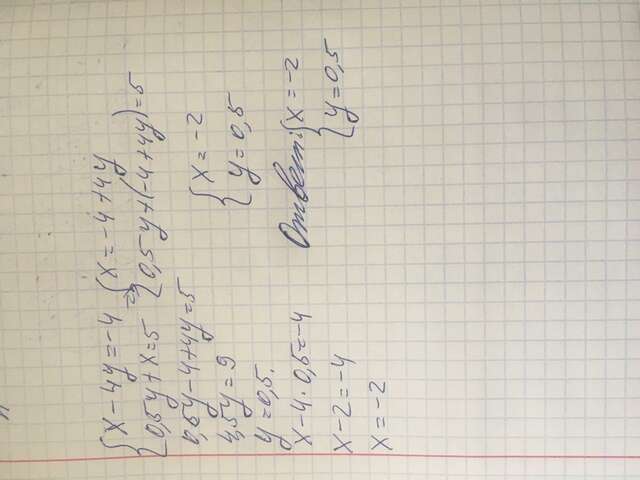 {x - 4y = -4
{0,5y + x = 5
=> {x = -4 + 4y
{0,5y + (-4 + 4y) = 5
0,5y - 4 + 4y = 5
4,5y = 9
y = 0,5.
x - 4 · 0,5 = -4
x - 2 = -4
x = -2
{x = -2
{y = 0,5
Ответ: {x = -2
{y = 0,5